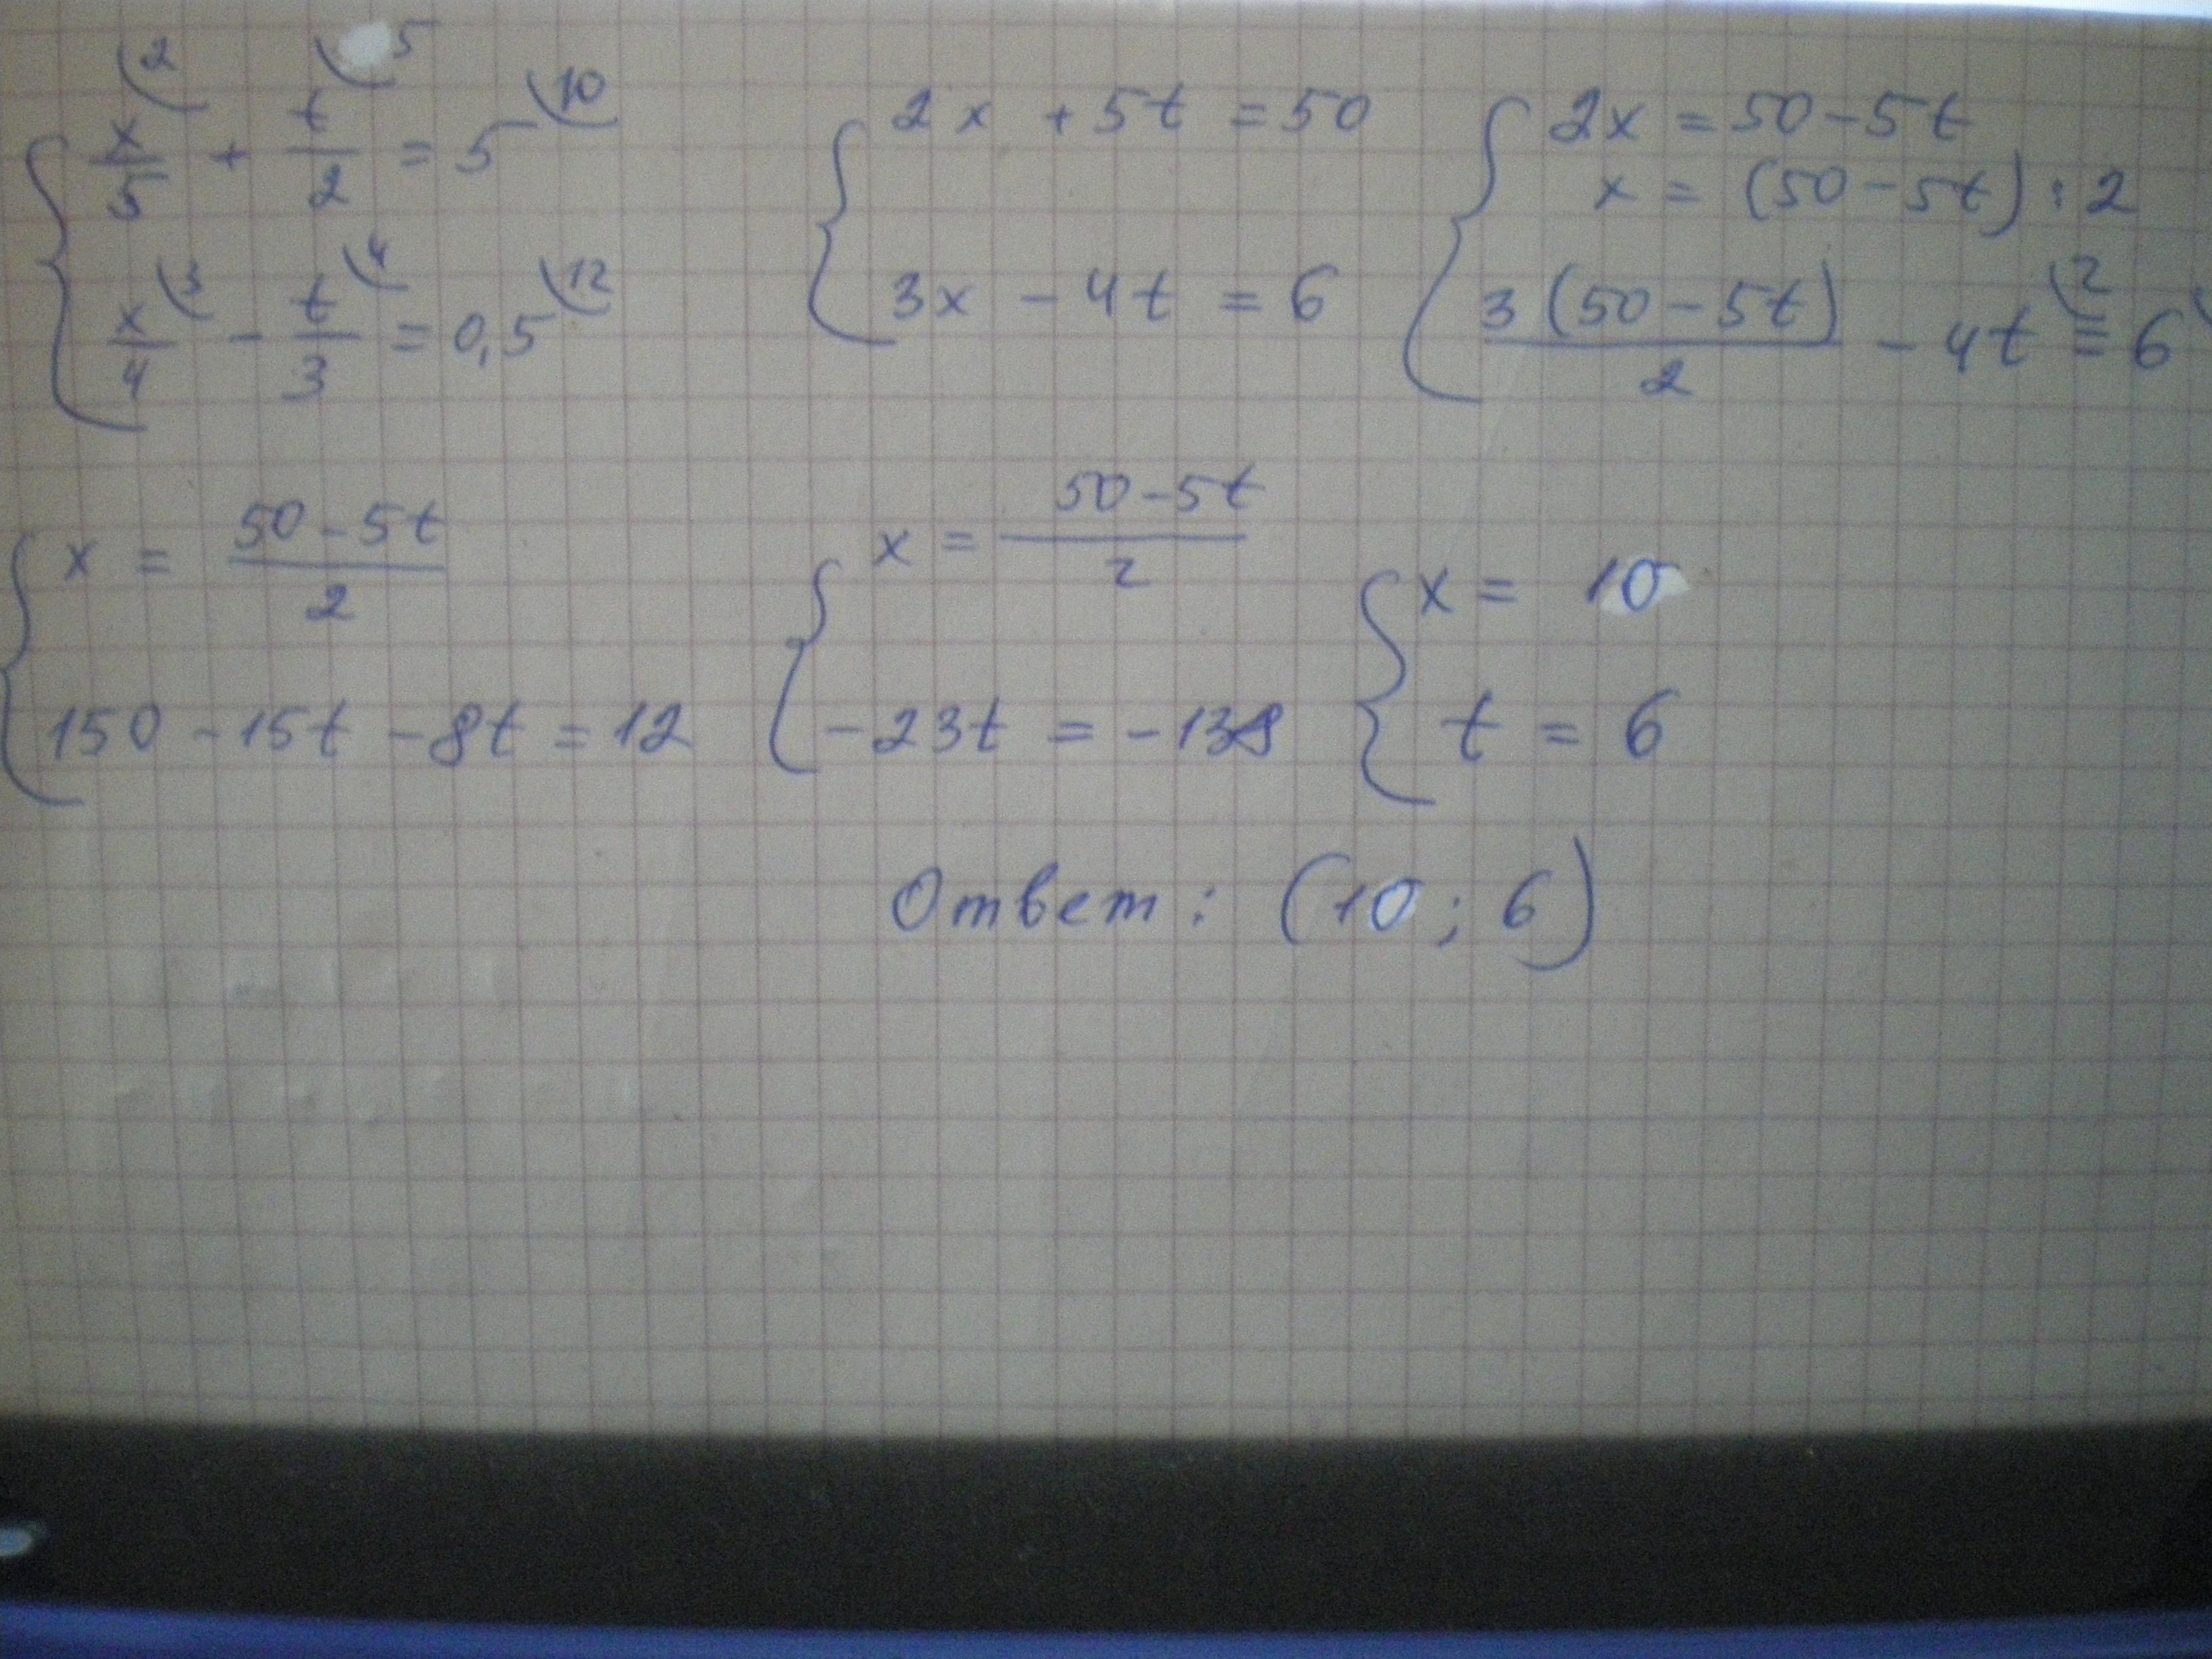 x/5 (2 + t/2 (5 = 5 (10
x/4 (3 − t/3 (4 = 0,5 (12
2x + 5t = 50
3x − 4t = 6
2x = 50 − 5t
x = (50 − 5t) : 2
3(50 − 5t)/2 − 4t (2 = 6
x = (50 − 5t)/2
150 − 15t − 8t = 12
x = (50 − 5t)/2
−23t = −138
x = 10
t = 6
Ответ: (10; 6)